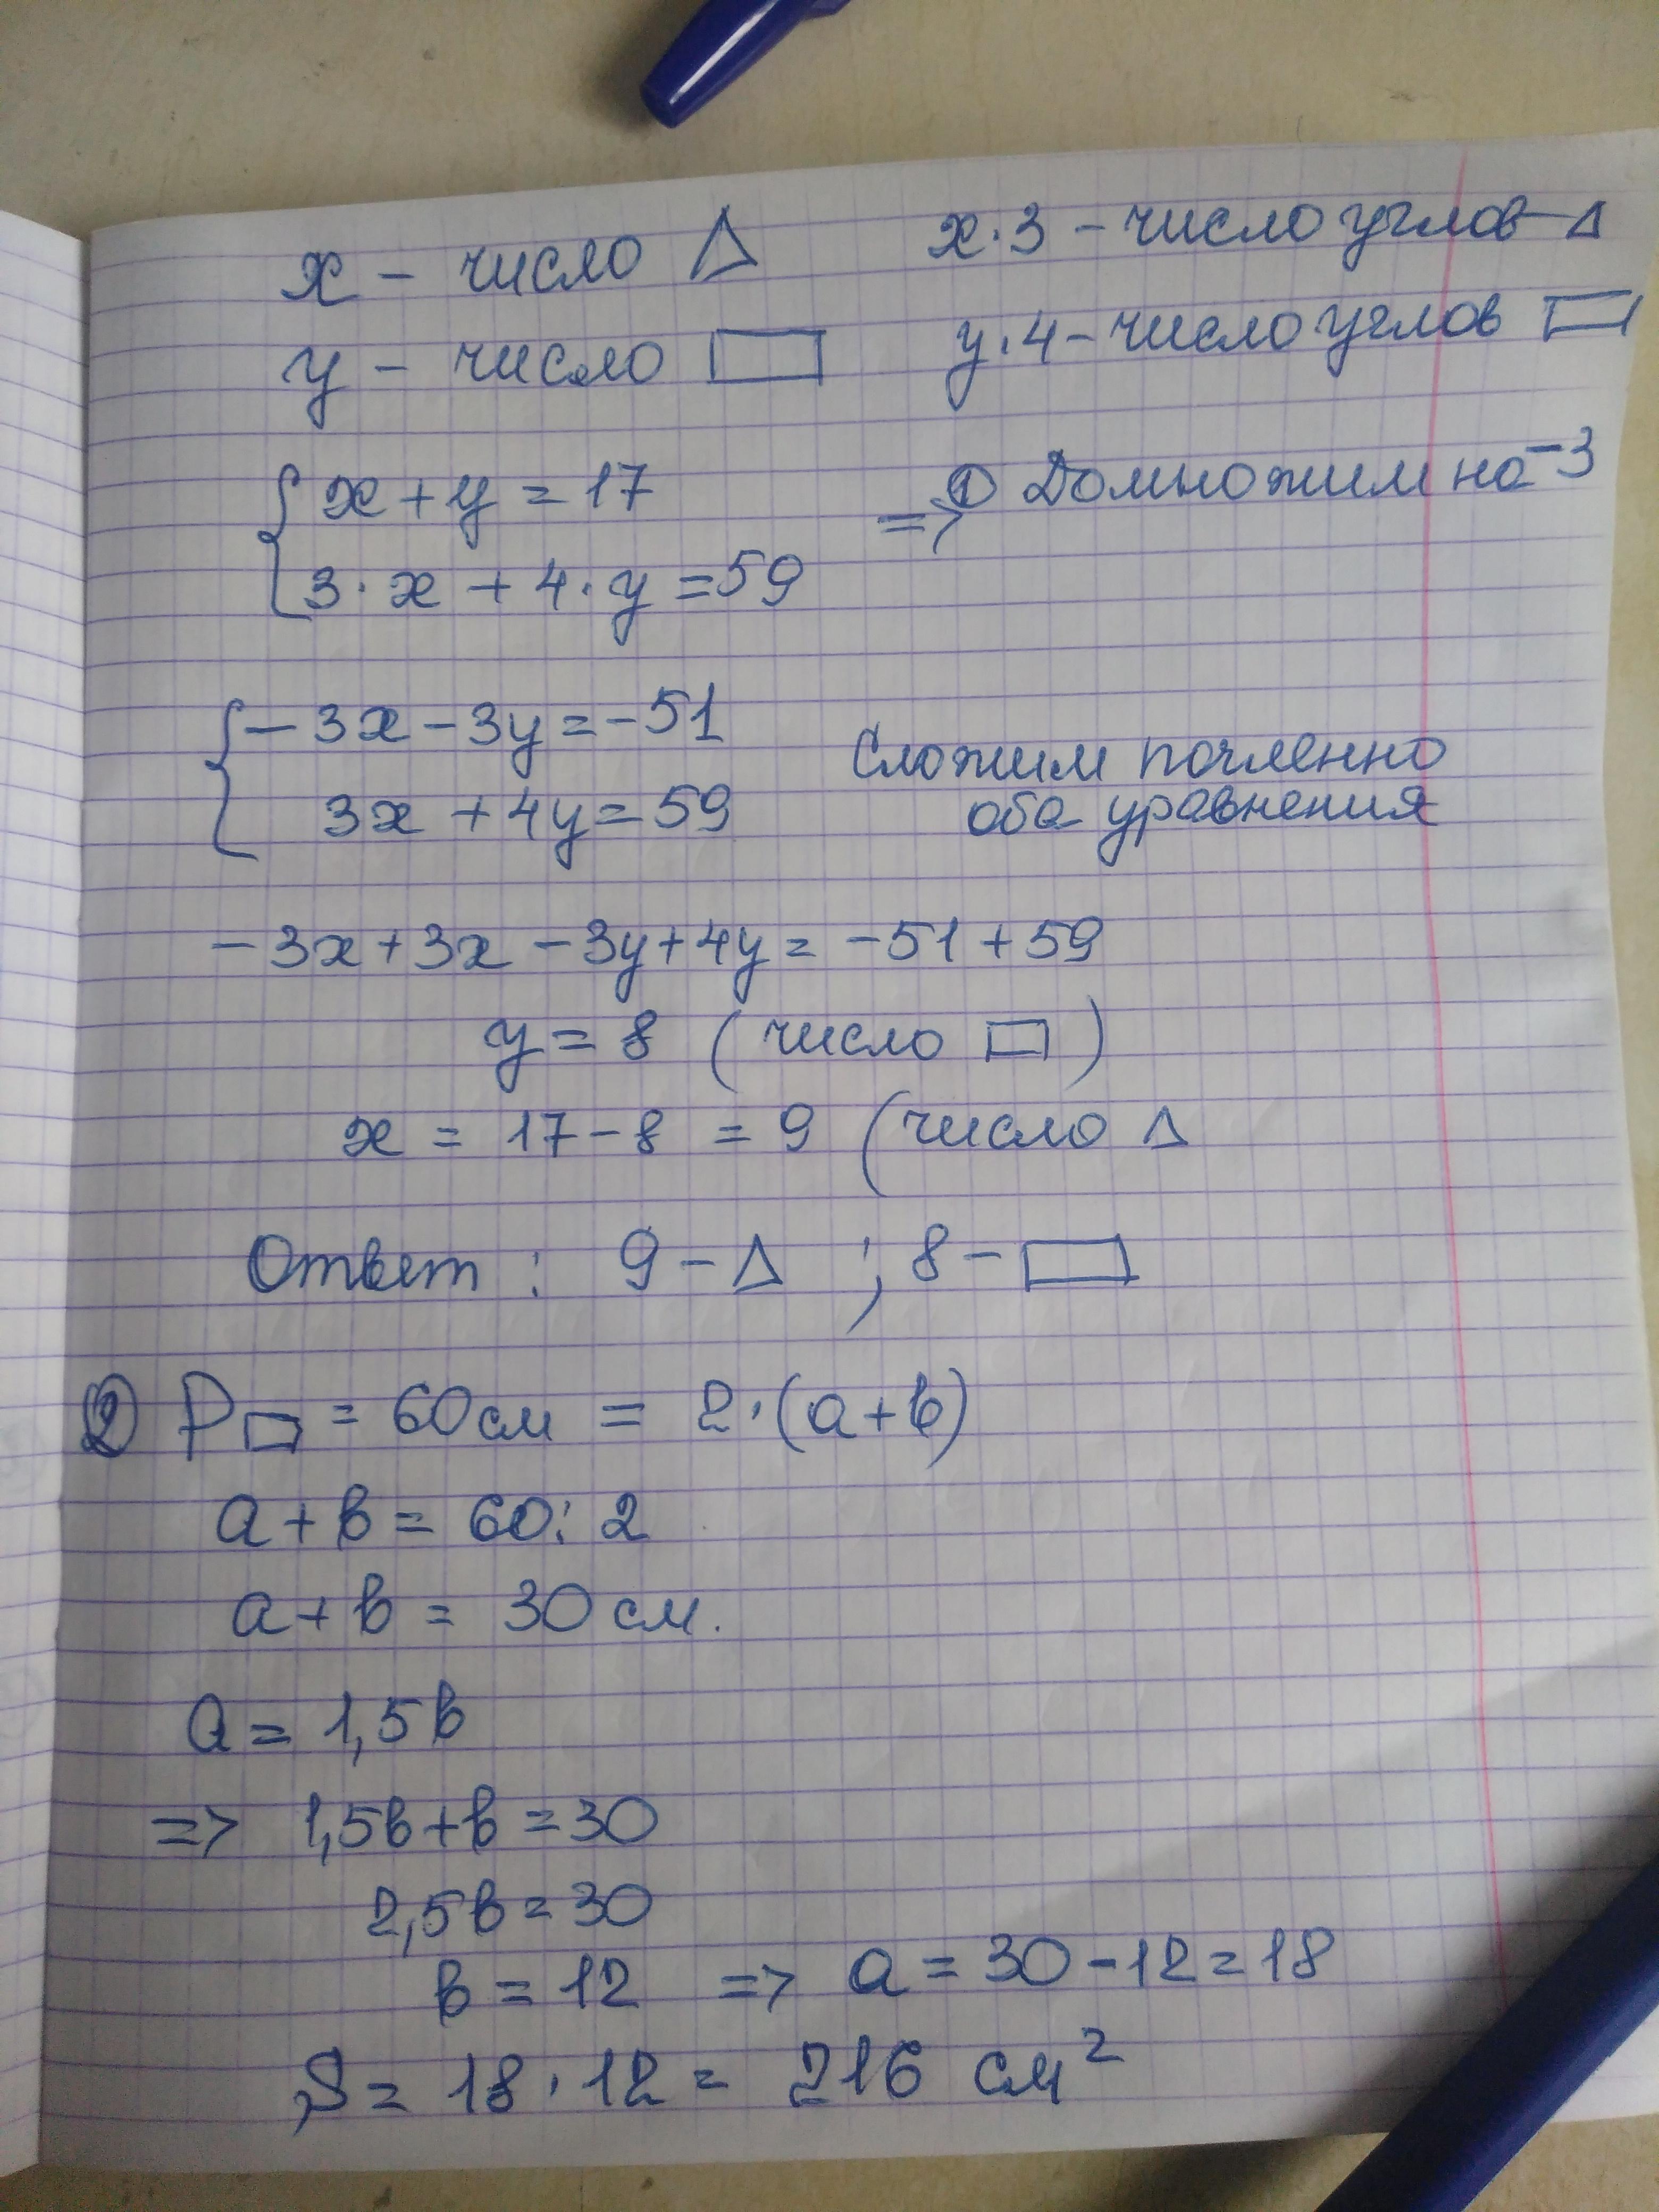 x - число △ x·3 - число углов △
y - число ▭ y·4 - число углов ▭
{ x + y = 17 => ① Домножим на -3
3·x + 4·y = 59
{ -3x - 3y = -51 Сложим почленно
3x + 4y = 59 оба уравнения
-3x + 3x - 3y + 4y = -51 + 59
y = 8 ( число ▭ )
x = 17 - 8 = 9 ( число △
Ответ : 9 - △ ; 8 - ▭
② P▭ = 60 см = 2·(a+b)
a + b = 60 : 2
a + b = 30 см.
a = 1,5b
=> 1,5b + b = 30
2,5b = 30
b = 12 => a = 30 - 12 = 18
S = 18 · 12 = 216 см²